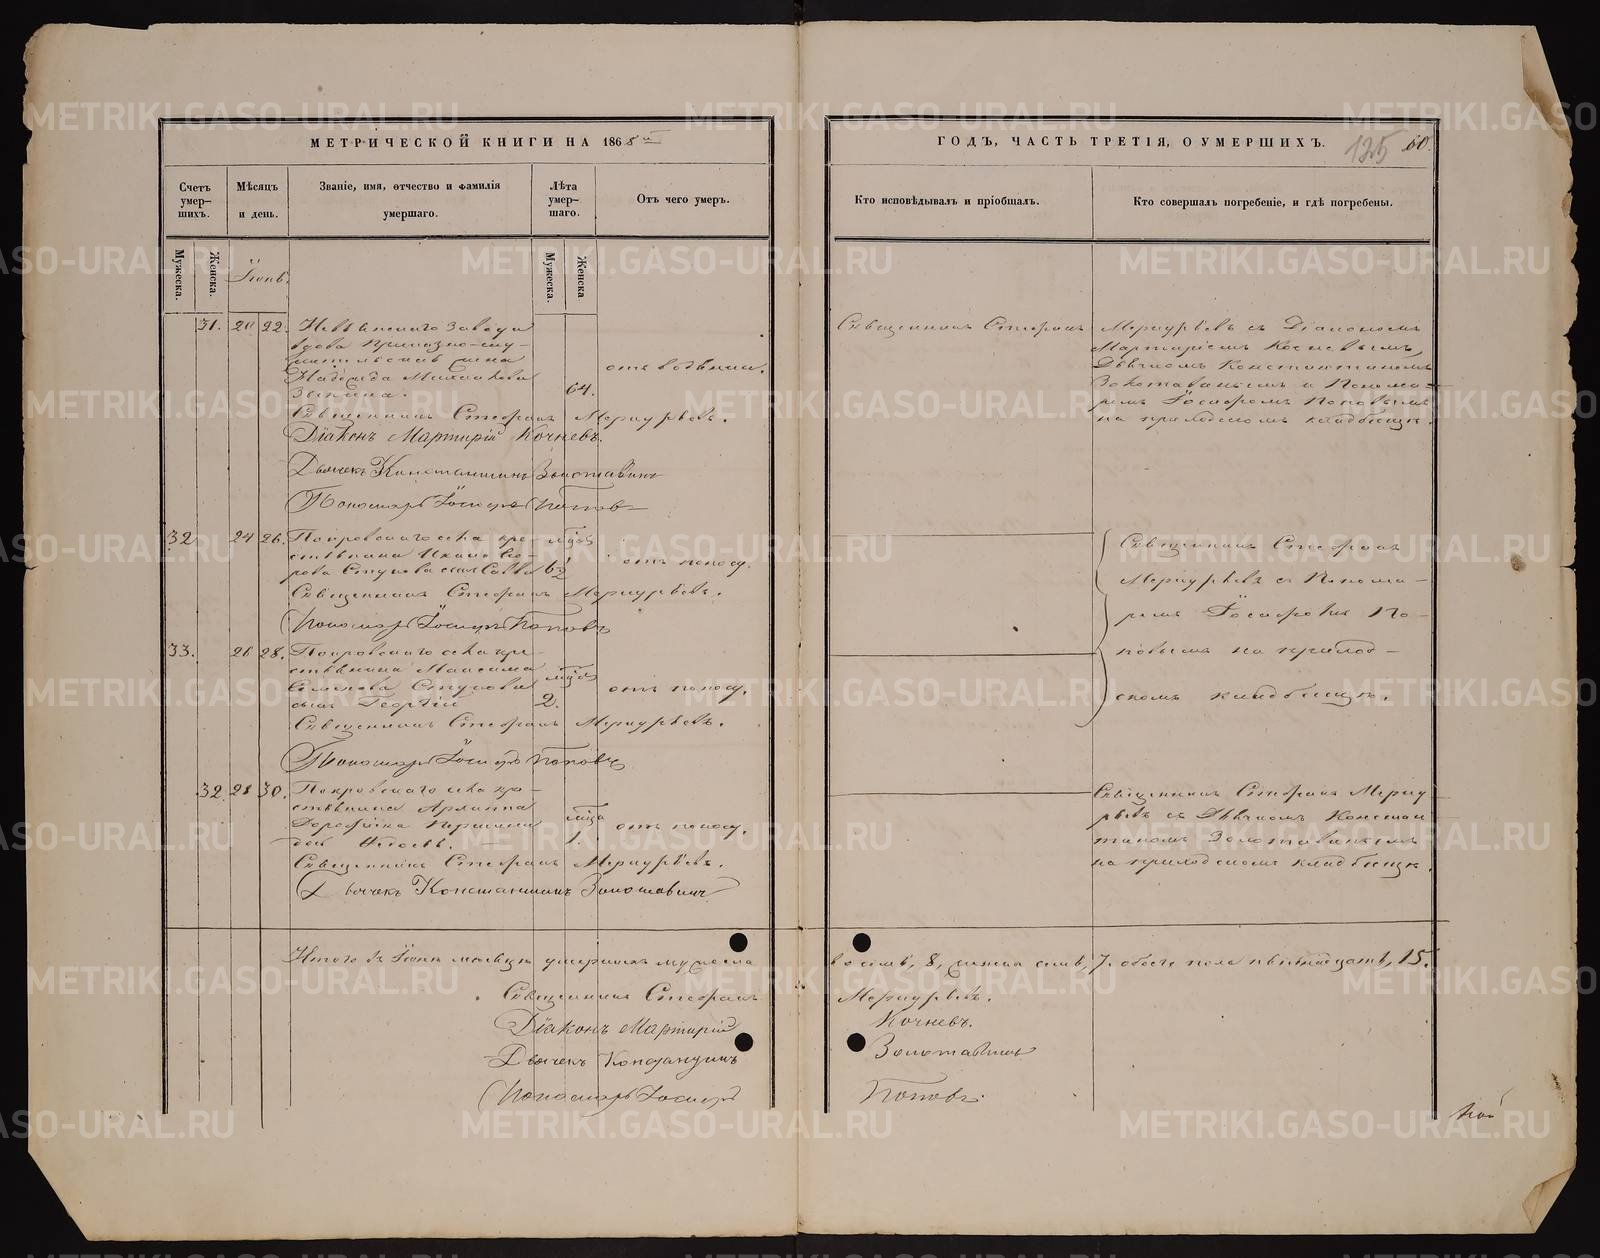 МЕТРИЧЕСКОЙ КНИГИ НА 1868й
ГОДЪ, ЧАСТЬ ТРЕТІЯ, О УМЕРШИХЪ.
125
60.
Счетъ умер-шихъ.
Мѣсяцъ и день.
Званіе, имя, отчество и фамилія умершаго.
Лѣта умер-шаго.
Отъ чего умеръ.
Кто исповѣдывалъ и пріобщалъ.
Кто совершалъ погребеніе, и гдѣ погребены.
Мужеска.
Женска.
Іюнь.
Мужеска.
Женска
31. 20 22. Невьянскаго завода
вдова
жена
Надежда Михайлова
64.
отъ водяной.
Священникъ Стефанъ Меркурьевъ съ Діакономъ
Мартиріемъ Кочневымъ,
Дьячкомъ Константиномъ
Золотавинымъ и Понома-
ремъ Іосифомъ Поповымъ
на приходскомъ кладбищѣ.
Священникъ Стефанъ Меркурьевъ.
Діаконъ Мартирій Кочневъ.
Дьячекъ Константинъ Золотавинъ
Пономарь Іосифъ Поповъ
32. 24 26. Покровскаго села кре-
стьянина
сынъ Савва
отъ поносу.
Священникъ Стефанъ Меркурьевъ.
Пономарь Іосифъ Поповъ
Священникъ Стефанъ
Меркурьевъ съ Понома-
ремъ Іосифомъ По-
повымъ на приход-
скомъ кладбищѣ.
33. 26 28. Покровскаго села кре-
стьянина Максима
Семенова
сынъ Георгій
2.
отъ поносу.
Священникъ Стефанъ Меркурьевъ.
Пономарь Іосифъ Поповъ
32 28 30. Покровскаго села кре-
стьянина
Дорофѣева
дочь
1.
отъ поносу.
Священникъ Стефанъ Меркурьевъ.
Дьячекъ Константинъ Золотавинъ
Священникъ Стефанъ Меркурь-
евъ съ Дьячкомъ Констан-
тиномъ Золотавинымъ
на приходскомъ кладбищѣ.
Итого въ Іюнѣ мѣсяцѣ умершихъ мужеска восемь, 8, женска семь, 7. обоего пола пятнадцать, 15.
Священникъ Стефанъ Меркурьевъ.
Діаконъ Мартирій Кочневъ.
Дьячекъ Константинъ Золотавинъ
Пономарь Іосифъ Поповъ.
METRIKI.GASO-URAL.RU